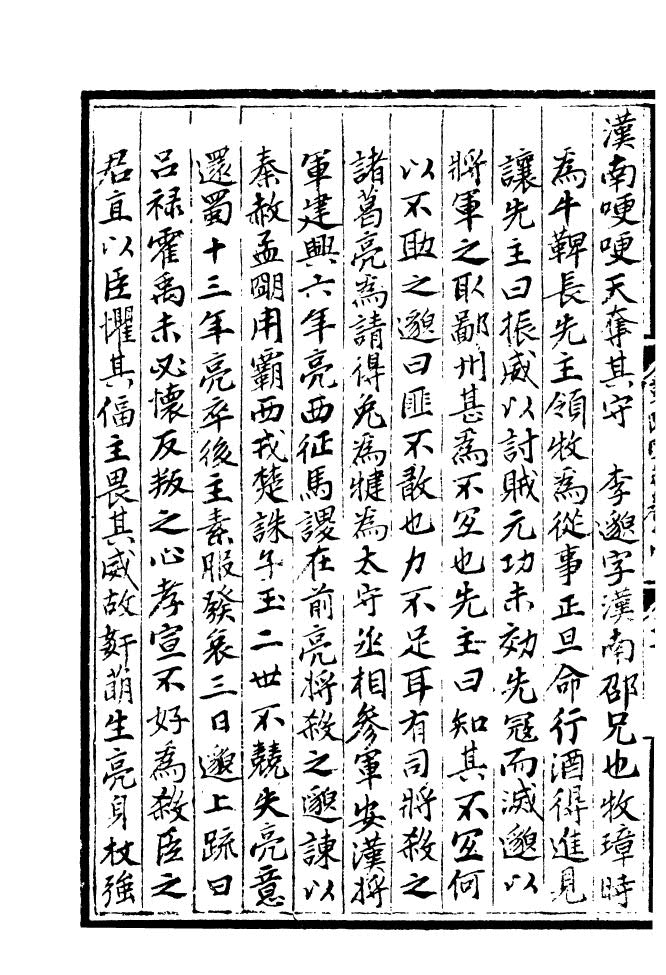 漢南哽哽天奪其守　李邈字漢南邵兄也牧璋時
為牛鞞長先主領牧為從事正旦命行酒得進見
讓先主曰振威以討賊元功未効先冦而滅邈以
將軍之取鄙州甚為不宜也先主曰知其不宜何
以不助之邈曰匪不敢也力不足耳有司將殺之
諸葛亮為請得免為犍為太守丞相參軍安漢將
軍建興六年亮西征馬謖在前亮將殺之邈諫以
秦赦孟明用霸西戎楚誅子玉二世不競失亮意
還蜀十三年亮卒後主素服發哀三日邈上疏曰
吕禄霍禹未必懷反叛之心孝宣不好為殺臣之
君直以臣懼其偪主畏其威故姧萌生亮身杖強